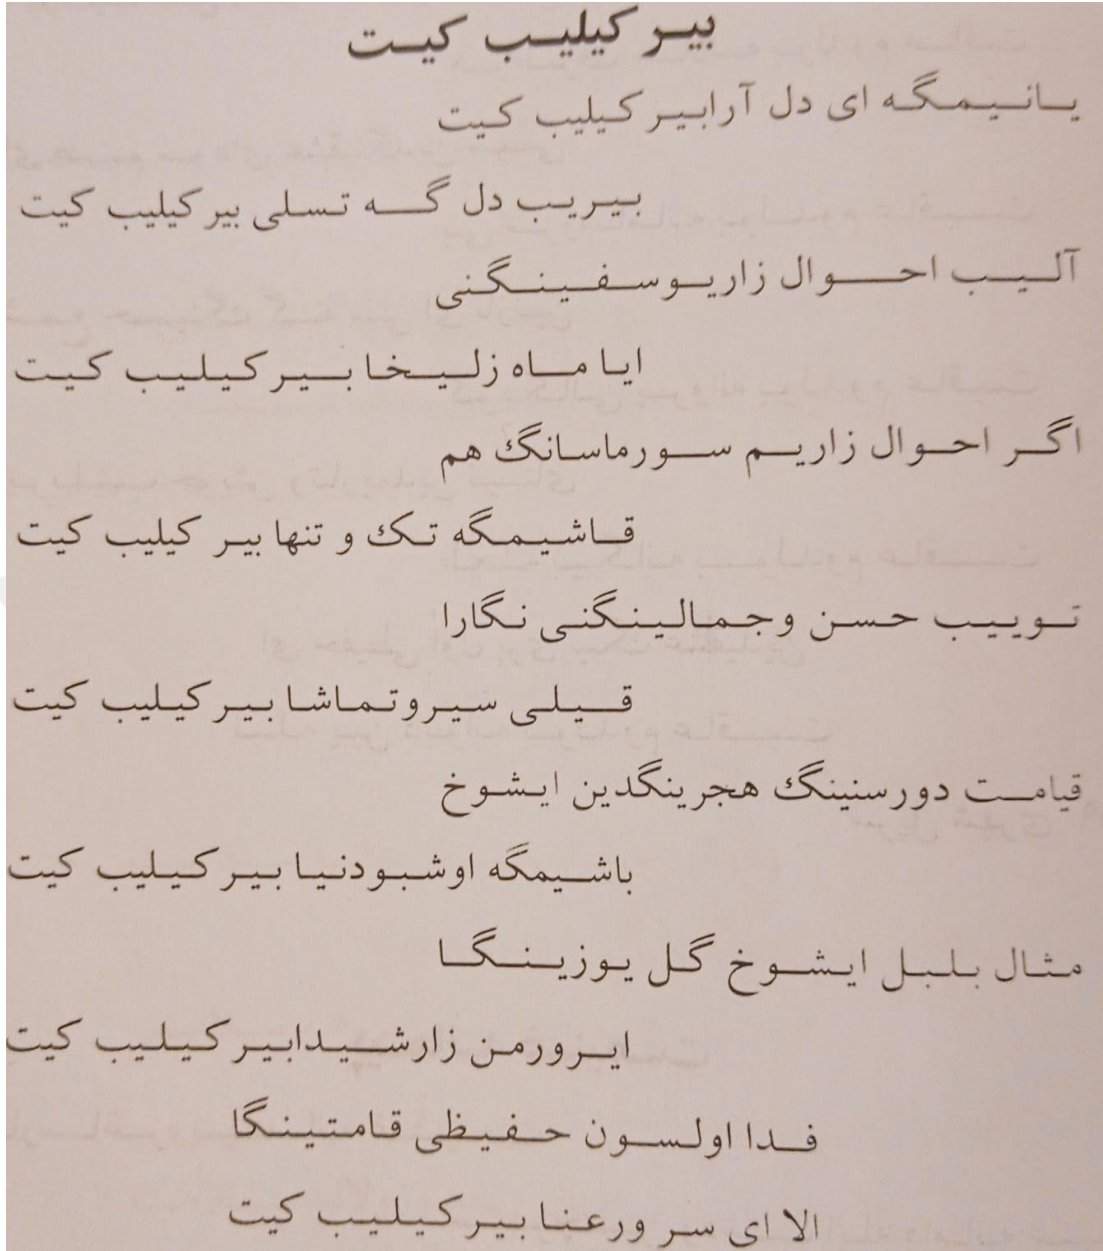 بیر کیلیب کیت
یانیمگه ای دل آرابیر کیلیب کیت
بیریب دل گه تسلی بیر کیلیب کیت
آلیب احوال زاریوسفینگنی
ایا ماه زلیخا بیر کیلیب کیت
اگر احوال زاریم سورماسانگ هم
قاشیمگه تک و تنها بیر کیلیب کیت
توییب حسن وجمالینگنی نگارا
قیلی سیروتماشا بیر کیلیب کیت
قیامت دورسنینگ هجرینگدین ایشوخ
باشیمگه اوشبودنیا بیر کیلیب کیت
مثال بلبل ایشوخ گل یوزینگا
ایرورمن زارشیدابیر کیلیب کیت
فدا اولسون حفیظی قامتینگا
الا ای سر ورعنا بیر کیلیب کیت